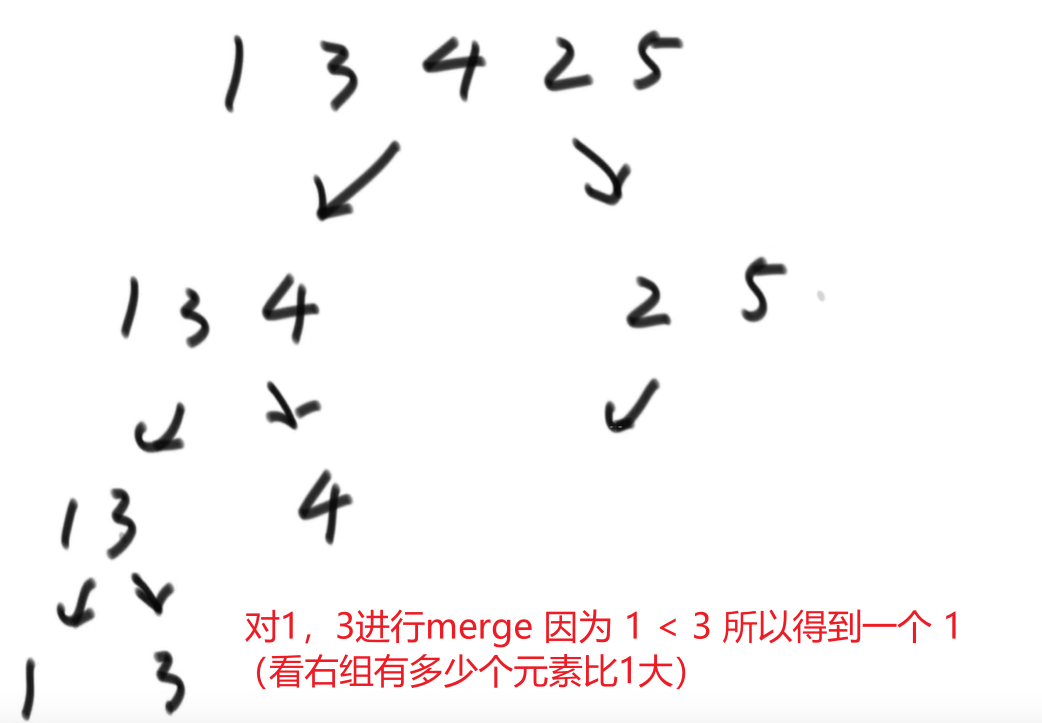 1 3 4 2 5
1 3 4 2 5
1 3 4
1 3
对1，3进行merge 因为 1 < 3 所以得到一个 1
（看右组有多少个元素比1大）